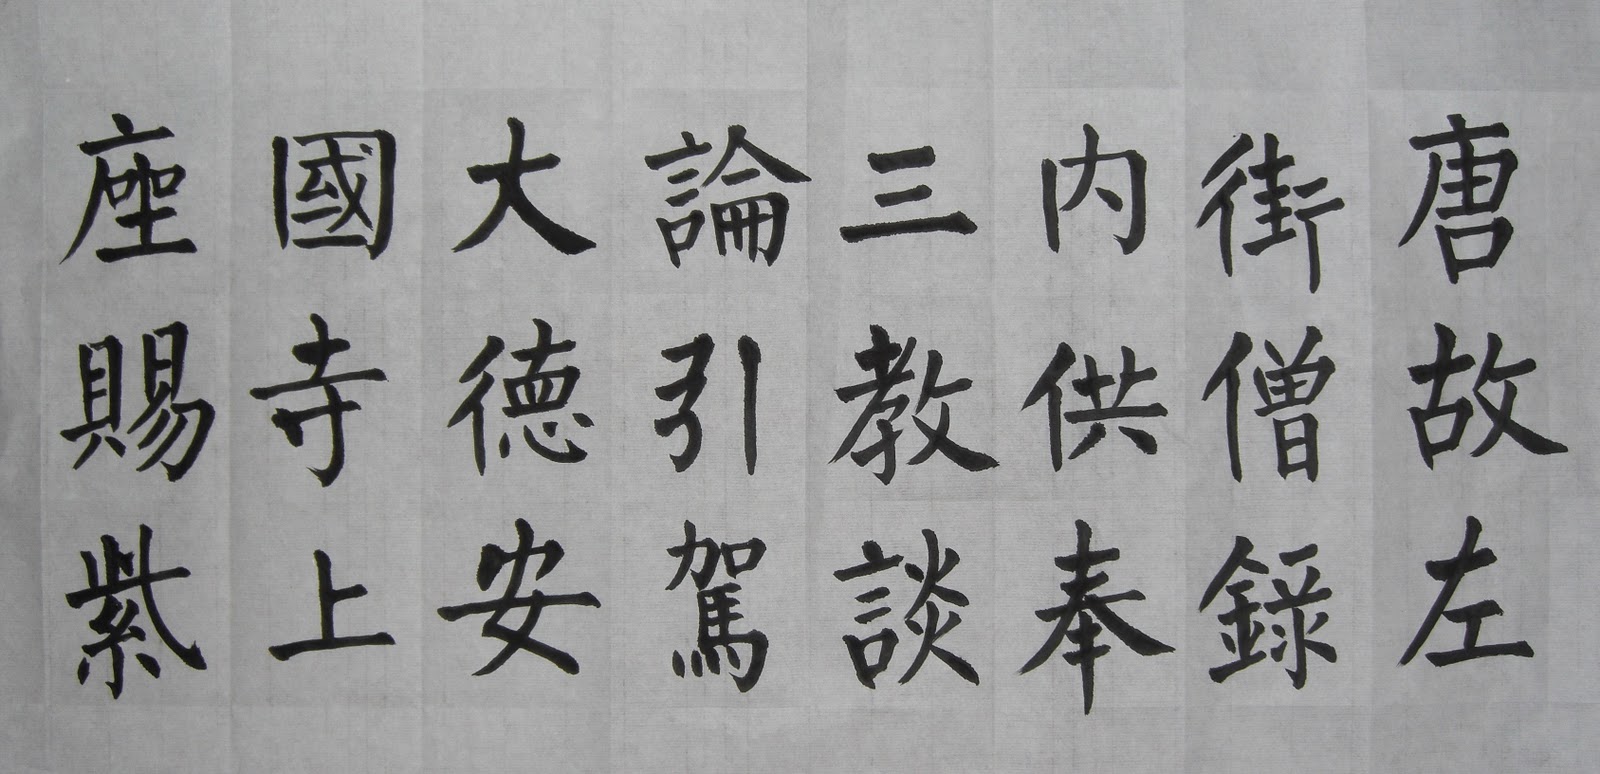 唐故左
街僧錄
內供奉
三教談
論引駕
大德安
國寺上
座賜紫